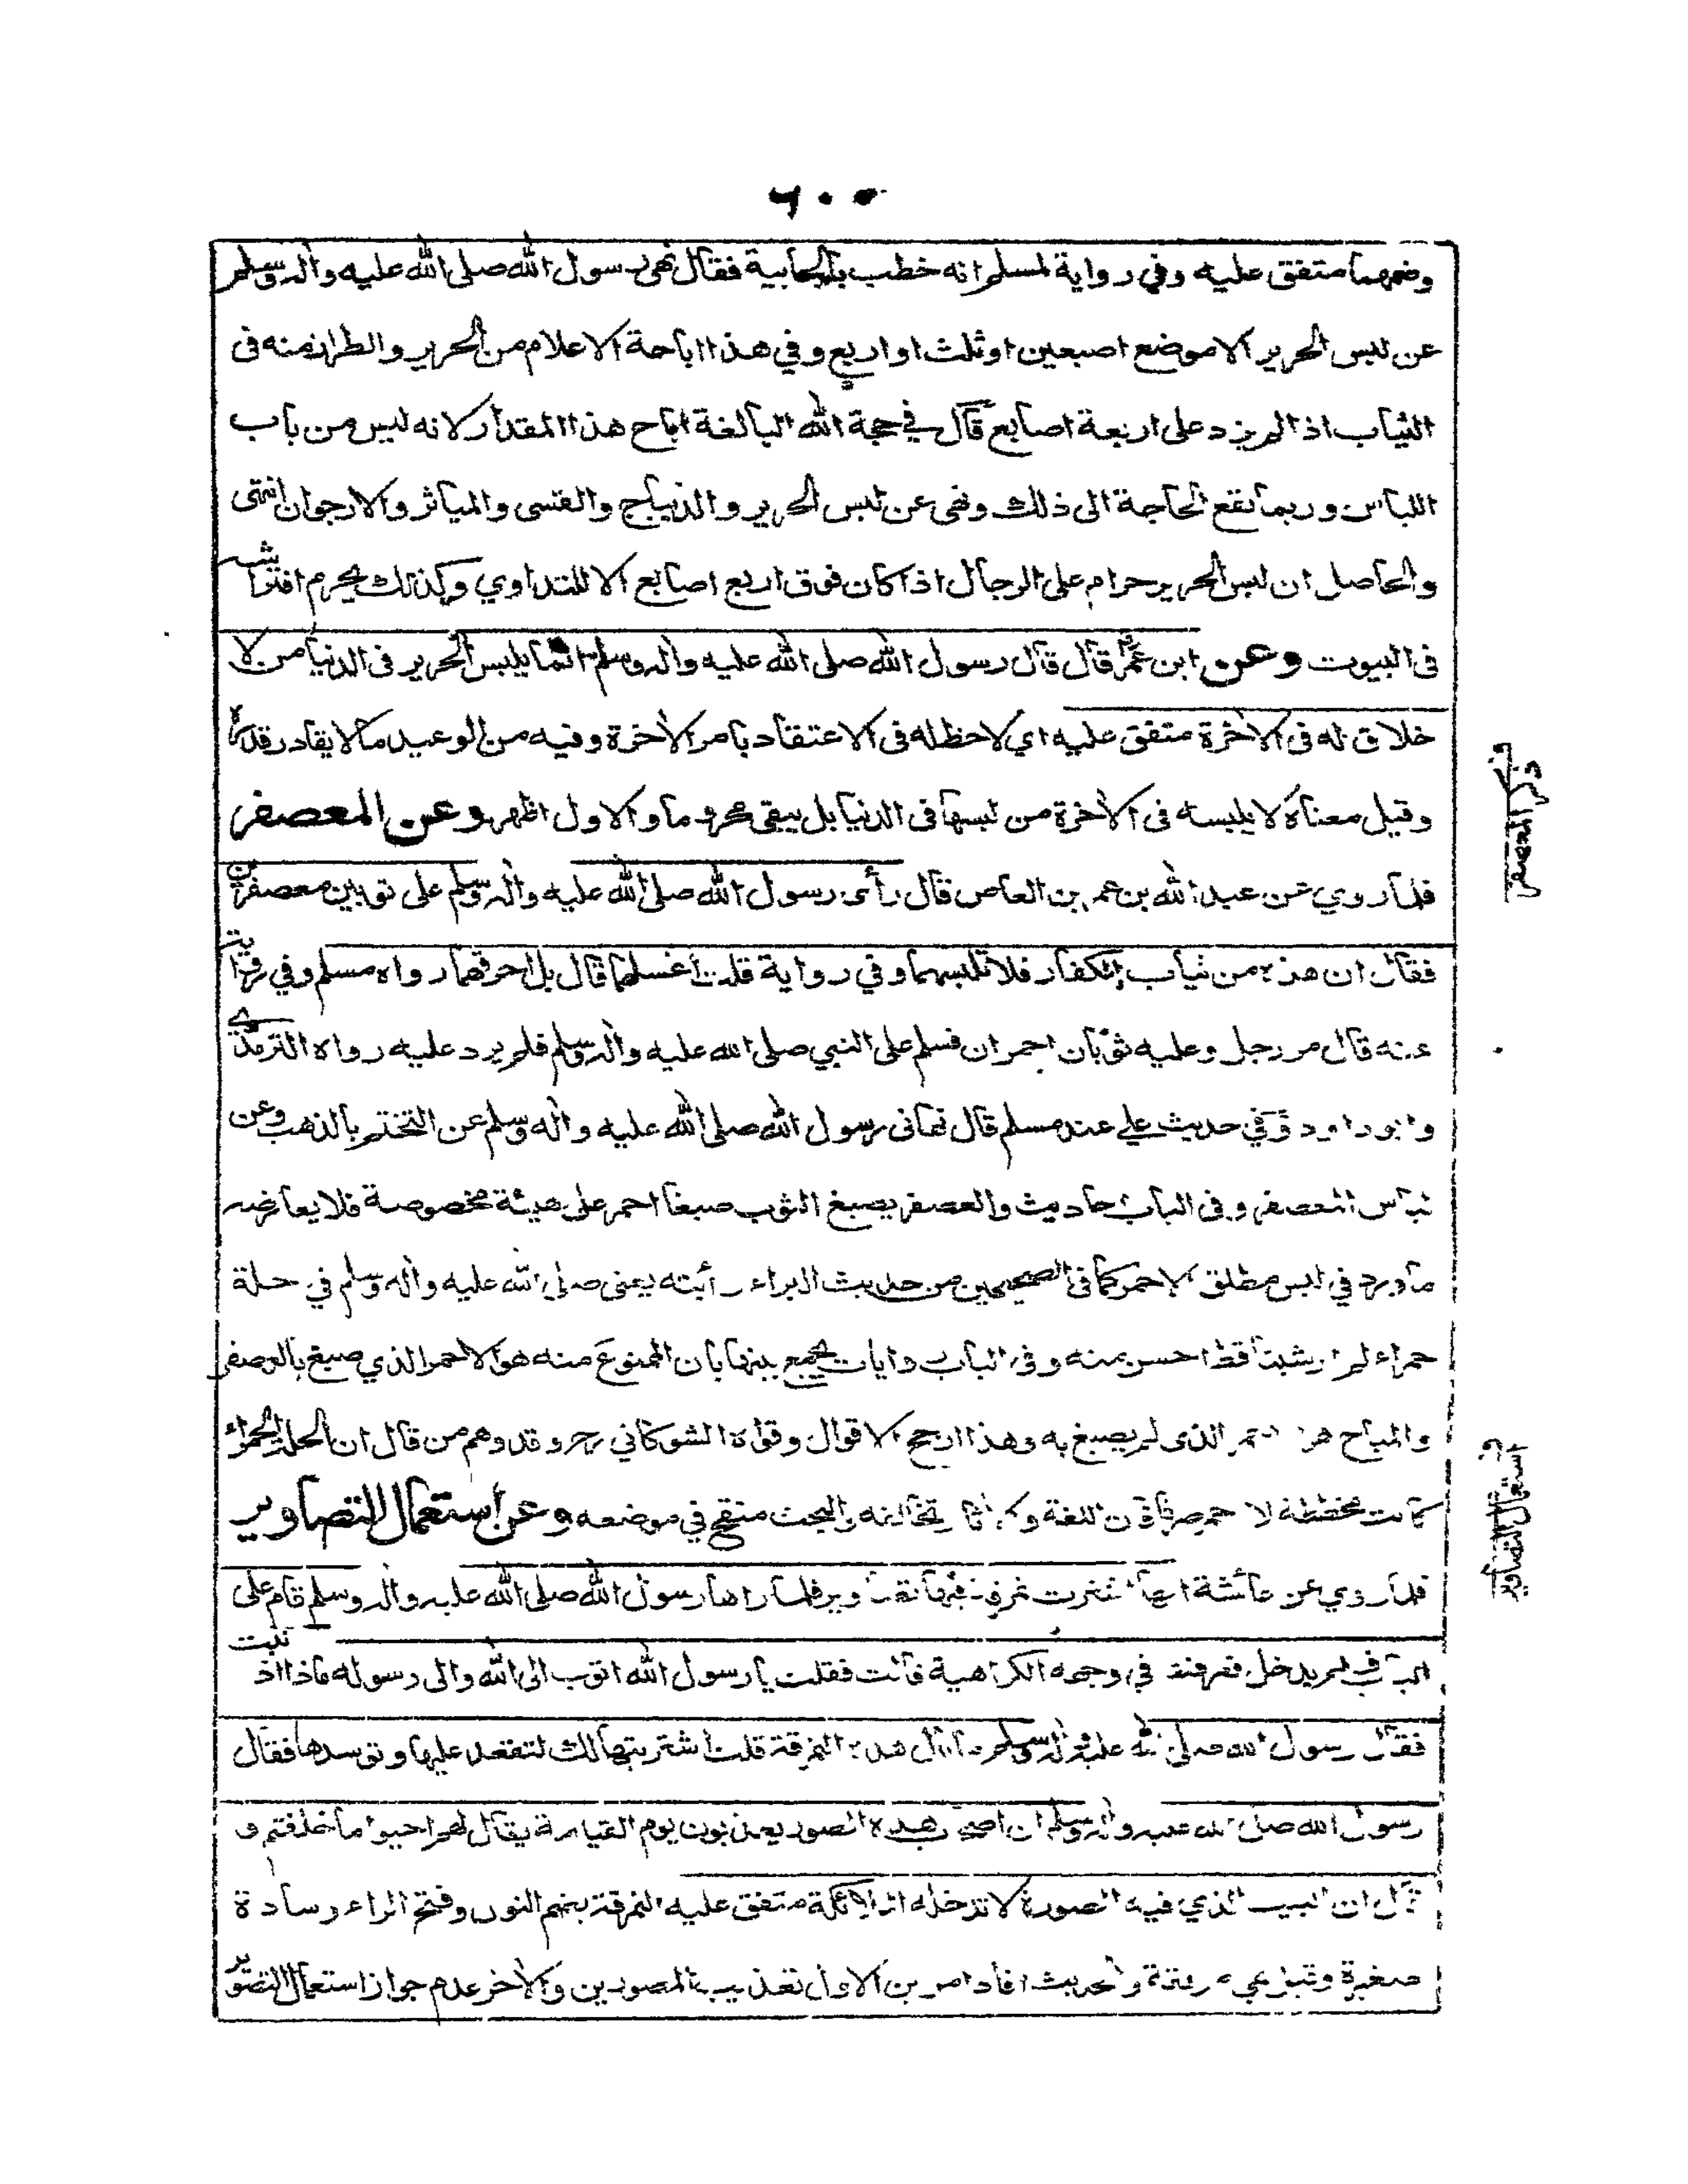 ٦٠٠
وضمهما متفق عليه وفي رواية لمسلم انه خطب بالجابية فقال نهى رسول الله صلى الله عليه واله وسلم
عن لبس الحرير الا موضع اصبعين او ثلث او اربع وفي هذا اباحة الاعلام من الحرير والطراز منه فى
الثياب اذا لم يزد على اربعة اصابع قال في حجة الله البالغة اباح هذا المقدار لانه ليس من باب
اللباس وربما تقع الحاجة الى ذلك ونهى عن لبس الحرير والديباج والقسى والمياثر والارجوان انتهى
والحاصل ان لبس الحرير حرام على الرجال اذا كان فوق اربع اصابع الا للتداوي وكذلك يحرم افتراشه
فى البيوت وعن ابن عمر قال قال رسول الله صلى الله عليه واله وسلم انما يلبس الحرير فى الدنيا من لا
خلاق له فى الاخرة متفق عليه اي لا حظ له فى الاعتقاد بامر الاخرة وفيه من الوعيد ما لا يقادر قدره
وقيل معناه لا يلبسه فى الاخرة من لبسها فى الدنيا بل يبقى محروما والاول اظهر وعن المعصفر
فلما روي عن عبد الله بن عمر بن العاص قال رأى رسول الله صلى الله عليه واله وسلم على ثوبين معصفرين
فقال ان هذه من ثياب الكفار فلا تلبسهما وفي رواية قلت أغسلهما قال بل احرقهما رواه مسلم وفي رواية
عنه قال مر رجل وعليه ثوبان احمران فسلم على النبي صلى الله عليه واله وسلم فلم يرد عليه رواه الترمذي
وابو داود وفي حديث علي عند مسلم قال نهانى رسول الله صلى الله عليه واله وسلم عن التختم بالذهب وعن
لباس المعصفر وفى الباب احاديث والعصفر يصبغ الثوب صبغا احمر على هيئة مخصوصة فلا يعارضه
ما ورد في لبس مطلق الاحمر كما فى الصحيحين من حديث البراء رأيته يعنى صلى الله عليه واله وسلم في حلة
حمراء لم ار شيئا قط احسن منه وفى الباب روايات يجمع بينها بان الممنوع منه هو الاحمر الذي صبغ بالعصفر
والمباح هو الاحمر الذى لم يصبغ به وهذا ارجح الاقوال وقواه الشوكاني رح وقد وهم من قال ان الحلة الحمراء
كانت مخططة لا احمر صرفا فان اللغة تخالفه والبحث منقح في موضعه وعن استعمال التصاوير
فلما روي عن عائشة انها اشترت نمرقة فيها تصاوير فلما راها رسول الله صلى الله عليه واله وسلم قام على
الباب فلم يدخل فعرفت في وجهه الكراهية قالت فقلت يا رسول الله اتوب الى الله والى رسوله ماذا اذنبت
فقال رسول الله صلى الله عليه واله وسلم ما بال هذه النمرقة قلت اشتريتها لك لتقعد عليها وتوسدها فقال
رسول الله صلى الله عليه واله وسلم ان اصحاب هذه الصور يعذبون يوم القيامة يقال لهم احيوا ما خلقتم و
قال ان البيت الذي فيه الصورة لا تدخله الملائكة متفق عليه النمرقة بضم النون وفتح الراء وسادة
صغيرة وقيل هي مرفقة والحديث افاد امرين الاول تعذيب المصورين والاخر عدم جواز استعمال التصوير
ف لبس المعصفر
ف استعمال التصاوير